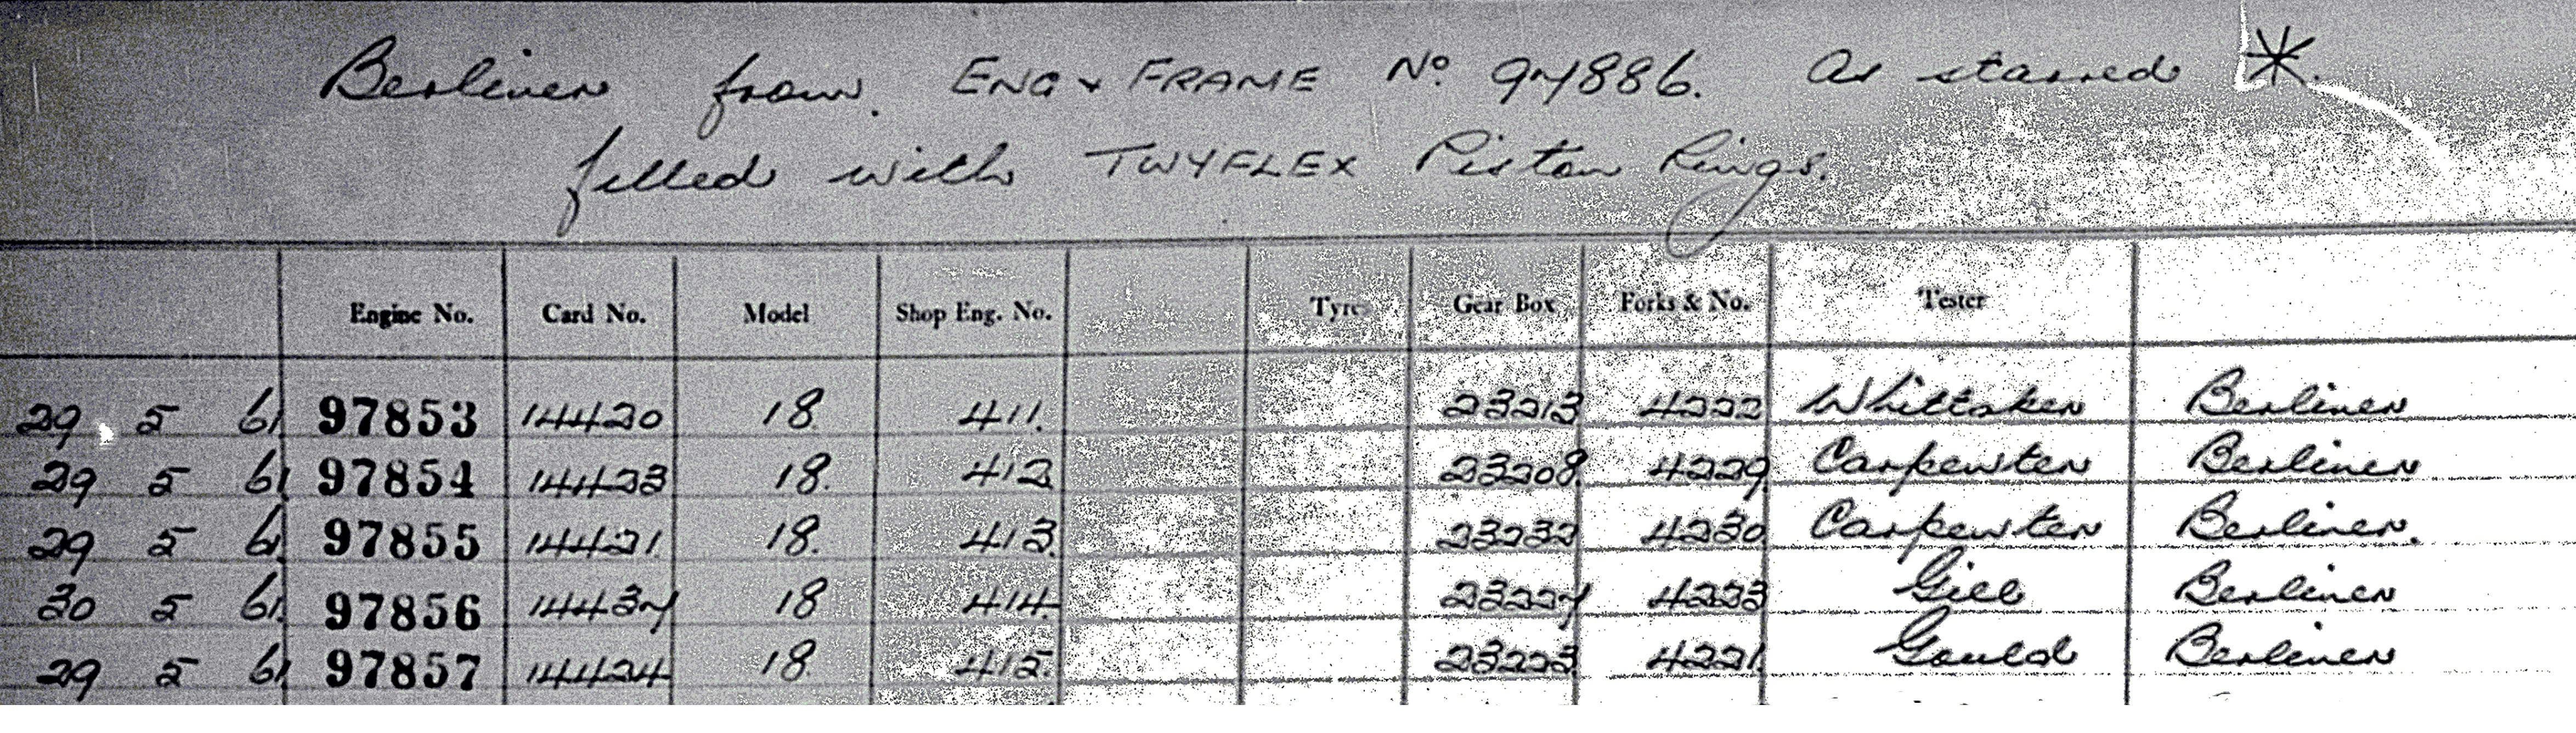 Berliner from. ENG & FRAME No 97886. As starred *.
fitted with TWYFLEX Piston Rings.
Engine No. Card No. Model Shop Eng. No. Tyre Gear Box Forks & No. Tester
29 5 61 97853 14420 18 411. 23213 4222 Whittaker Berliner
29 5 61 97854 14423 18. 412 23208 4229 Carpenter Berliner
29 5 61 97855 14421 18. 413. 23232 4230 Carpenter Berliner.
30 5 61 97856 14437 18 414 23227 4223 Gill Berliner
29 5 61 97857 14424 18 415. 23223 4221 Gould Berliner